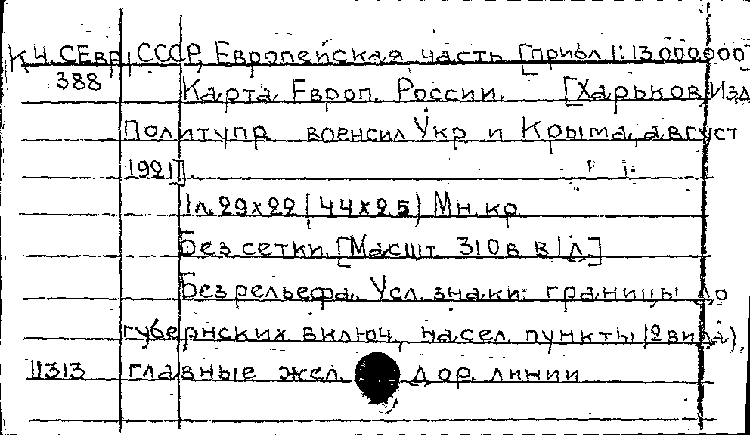 К Ч. СЕвр. СССР, Европейская часть [прибл 1:13000000]
388 Карта Европ. России. [Харьков] Изд
Политупр. военсил Укр и Крыма, август
1921].
1 л. 29х22 (44х25) Мн. кр
Без сетки. [Масшт. 310в в 1д.]
Без рельефа. Усл. знаки: границы до
губернских включ, насел. пункты (2 вида),
11313 главные жел. дор. линии